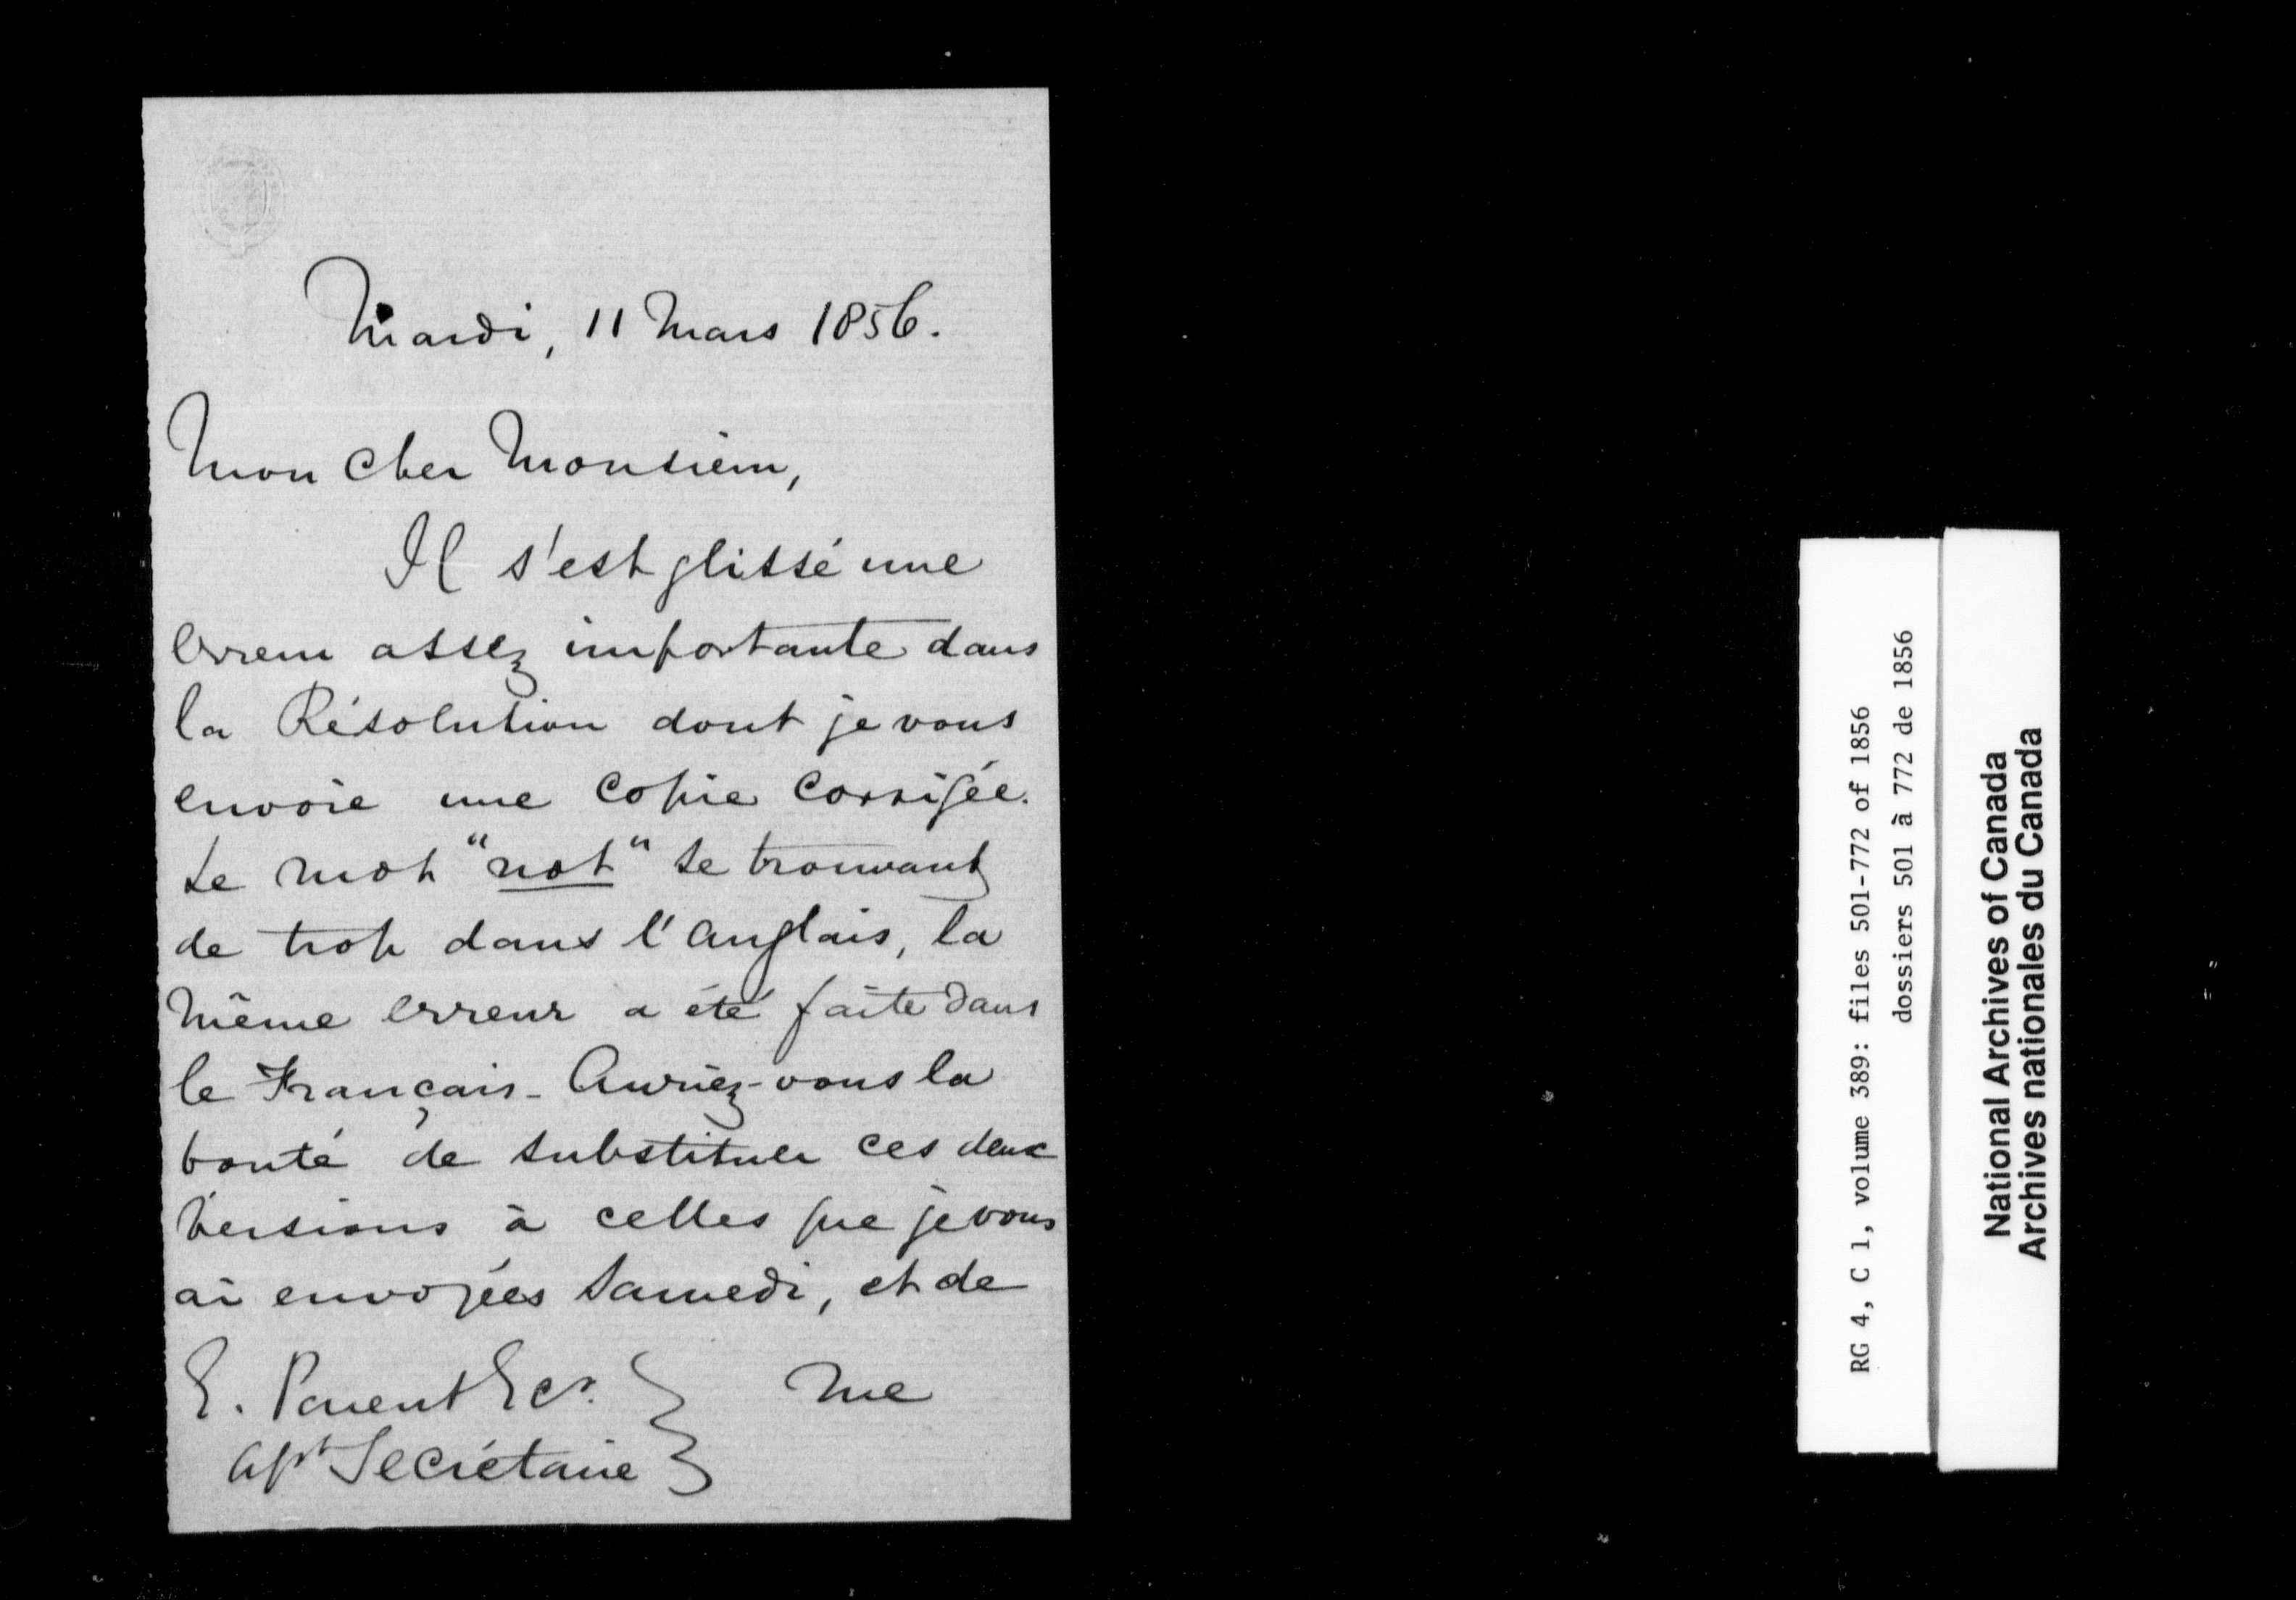 Mardi, 11 Mars 1856.
Mon cher Monsieur,
Il s'est glissé une
erreur assez importante dans
la Résolution dont je vous
envoie une copie corrigée.
Le mot "not" se trouvant
de trop dans l'anglais, la
même erreur a été faite dans
le Français - Auriez-vous la
bonté de substituer ces deux
versions à celles que je vous
ai envoyées Samedi, et de
me
E. Parent Ecr.
Asst Secrétaire
RG 4, C 1, volume 389: files 501-772 of 1856
dossiers 501 à 772 de 1856
National Archives of Canada
Archives nationales du Canada